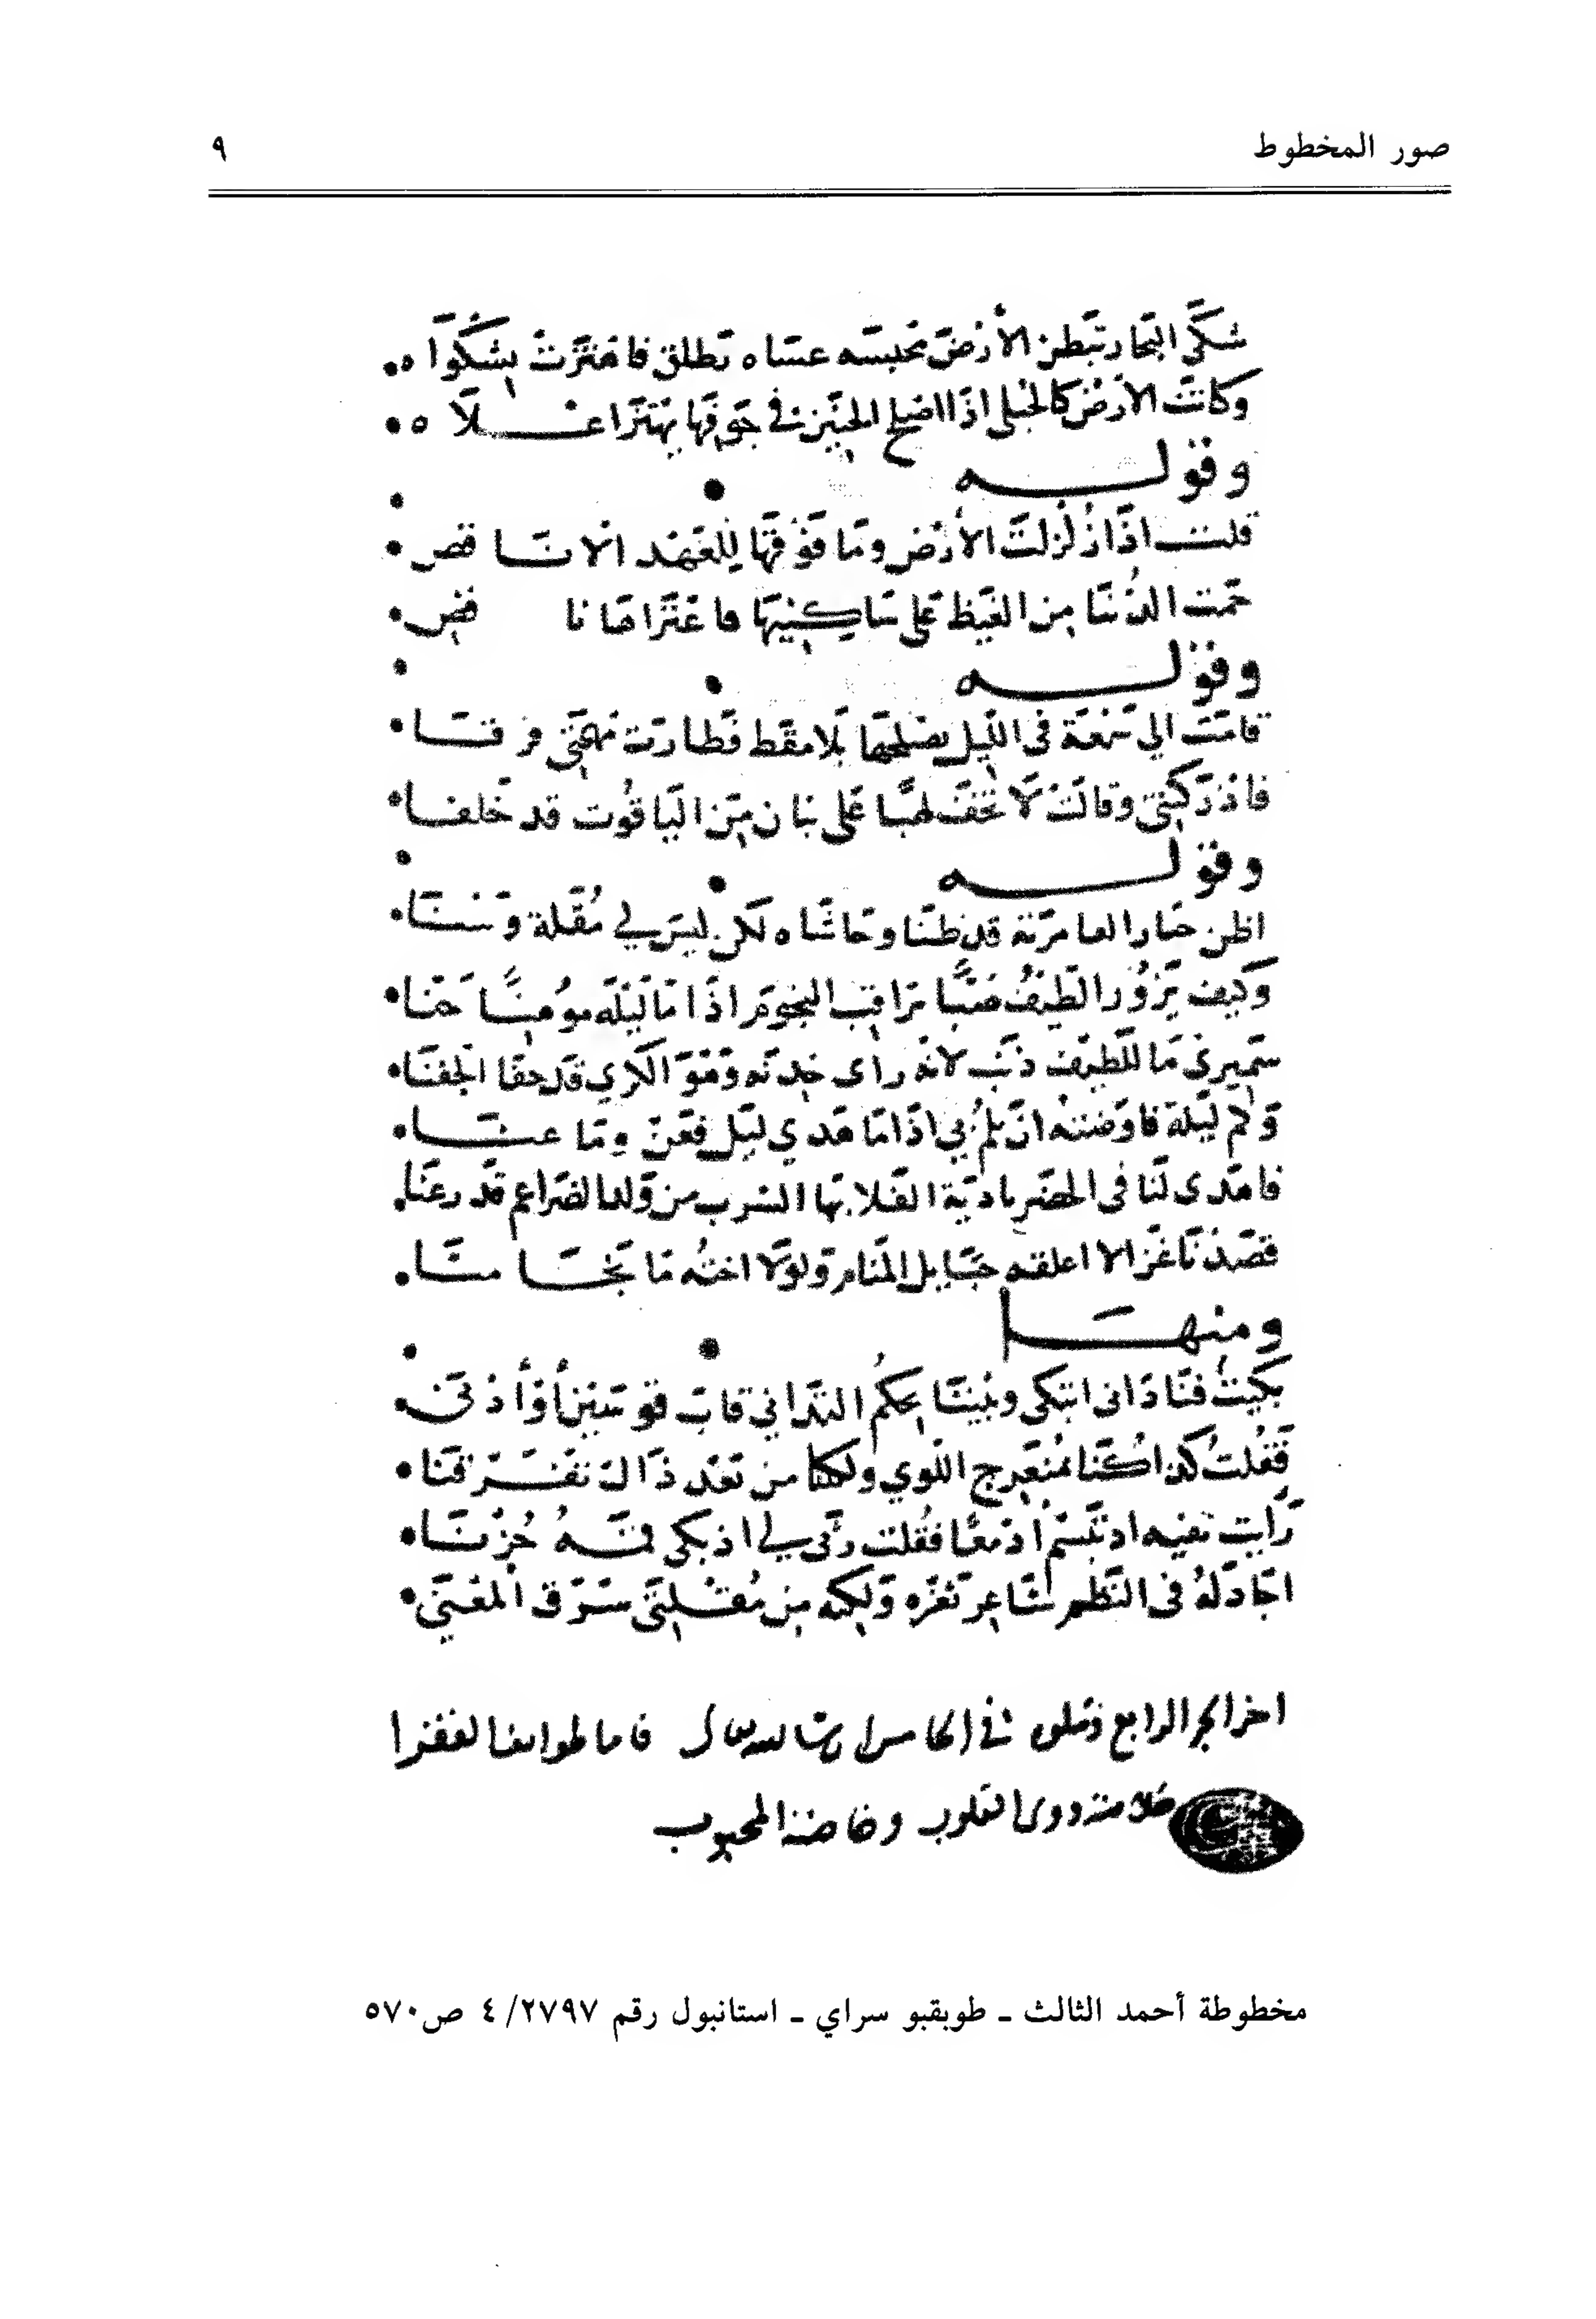 صور المخطوط ٩
شكى البخار تبطن الأرض تحبسه عساه تطلق فاهتزت بشكواه
وكانت الأرض كالحبلى اذا اضح الجنين في جوفها يهتز اعلاه
وقوله
قلت اذ زلزلت الأرض وما فوقها للعهد الانا قص
حمت الدنيا من الغيظ على ساكنيها فاعتراها نا فض
وقوله
قامت الي شمعة في الليل تصلحها بلا مقط فطارت مهجتي فرقا
فاذركتني وقالت لا تخف لهبا على بنان من الياقوت قد خلقا
وقوله
اظن خيار العامرية قد ظنا وحاشاه لكن ليس لي مقلة وسنا
وكيف يزور الطيف صبا يراقب النجوم اذا ما ليله موهنا جنا
سميري ما للطيف ذنب لانه راى خدنه وهو الكرى قد جفا الجفنا
وكم ليلة فاوضته ان يلم بي اذا ما هدي ليل فعن وما عنا
فاهدى لنا في الحضر بادية الفلا بها السرب من ولدا لضراغم قد رعنا
قصدنا غزالا اعلقه حبايل المنام ولولا اخته ما نجا منا
ومنها
بكيت فنادانى اتبكى وبيننا بحكم التداني قاب قوسين أو أدنى
فقلت كذا كنا بمنعرج اللوي ولكنا من بعد ذاك تفرقنا
رأيت بفيه اذ تبسم أدمعا فقلت رثى لي اذ بكى فمه حزنا
اجادله في النظم شاعر ثغره ولكنه من مقلتي سرق المعنى
اخر الجز الرابع وتملوه في الخامس
وخاصة المحبوب
مخطوطة أحمد الثالث ـ طوبقبو سراي ـ استانبول رقم ٢٧٩٧/ ٤ ص٥٧٠